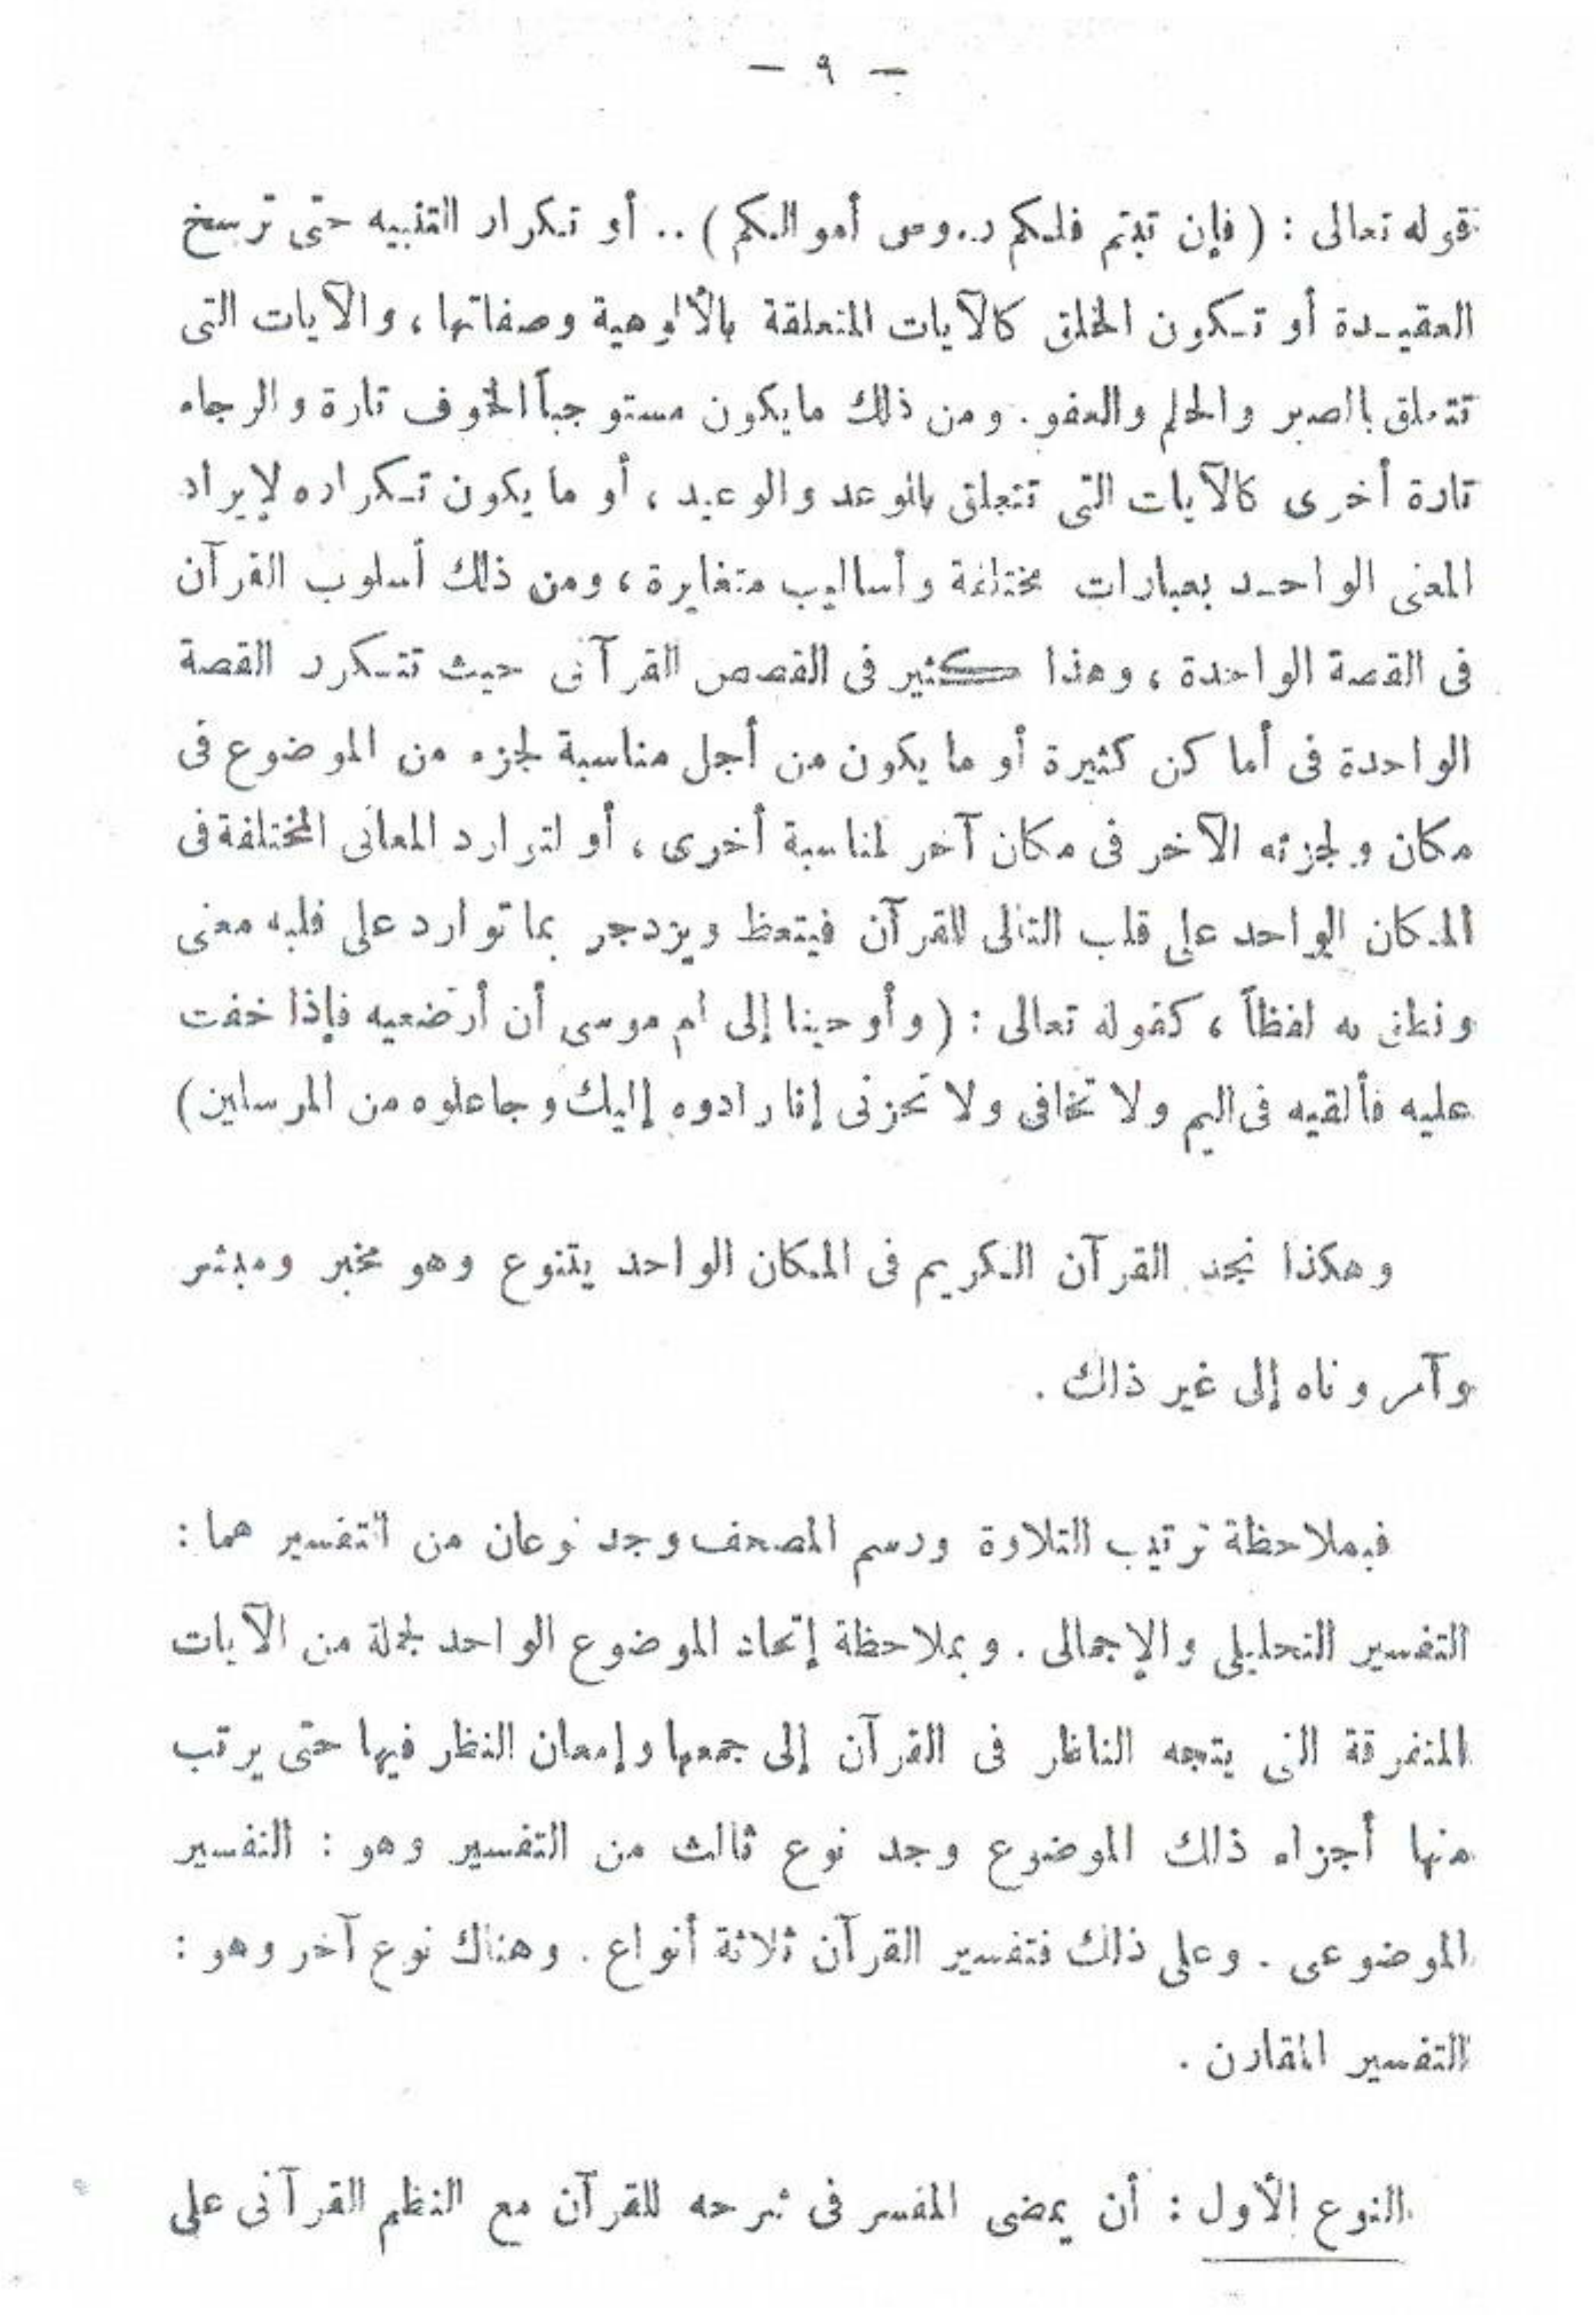 - ٩ -
قوله تعالى : ( فإن تبتم فلكم رءوس أموالكم ) .. أو تكرار التنبيه حتى ترسخ
العقيدة أو تكون الخلق كالآيات المتعلقة بالألوهية وصفاتها ، والآيات التى
تتعلق بالصبر والحلم والعفو . ومن ذلك ما يكون مستوجباً الخوف تارة والرجاء
تارة أخرى كالآيات التى تتعلق بالوعد والوعيد ، أو ما يكون تكراره لإيراد
المعنى الواحد بعبارات مختلفة وأساليب متغايرة ، ومن ذلك أسلوب القرآن
فى القصة الواحدة ، وهذا كثير فى القصص القرآنى حيث تتكرر القصة
الواحدة فى أماكن كثيرة أو ما يكون من أجل مناسبة لجزء من الموضوع فى
مكان ولجزئه الآخر فى مكان آخر لمناسبة أخرى ، أو لتوارد المعانى المختلفة فى
المكان الواحد على قلب التالى للقرآن فيتعظ ويزدجر بما توارد على قلبه معنى
ونطق به لفظاً ، كقوله تعالى : ( وأوحينا إلى أم موسى أن أرضعيه فإذا خفت
عليه فألقيه فى اليم ولا تخافى ولا تحزنى إنا رادوه إليك وجاعلوه من المرسلين )
وهكذا نجد القرآن الكريم فى المكان الواحد يتنوع وهو مخبر ومبشر
وآمر وناه إلى غير ذلك .
فبملاحظة ترتيب التلاوة ورسم المصحف وجد نوعان من التفسير هما :
التفسير التحليلى والإجمالى . وبملاحظة إتحاد الموضوع الواحد لجملة من الآيات
المتفرقة التى يتجه الناظر فى القرآن إلى جمعها وإمعان النظر فيها حتى يرتب
منها أجزاء ذلك الموضوع وجد نوع ثالث من التفسير وهو : التفسير
الموضوعى . وعلى ذلك فتفسير القرآن ثلاثة أنواع . وهناك نوع آخر وهو :
التفسير المقارن .
النوع الأول : أن يمضى المفسر فى شرحه للقرآن مع النظم القرآنى على